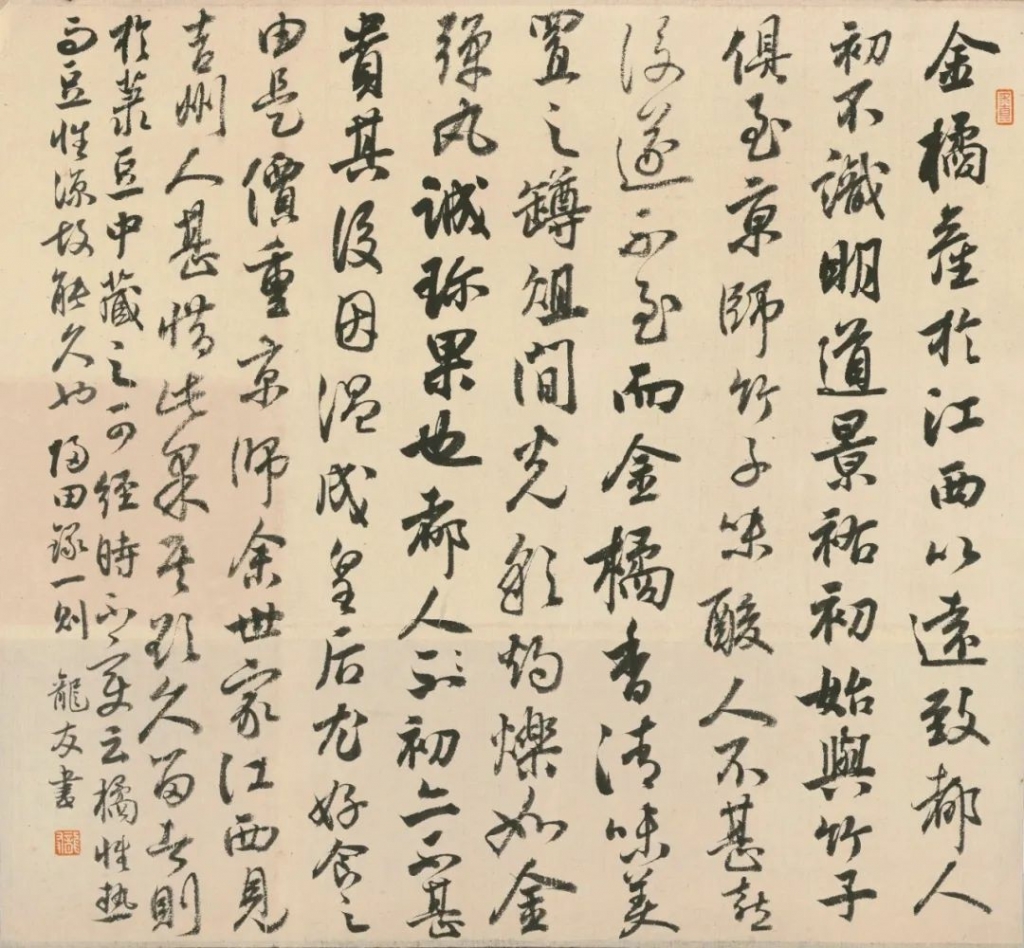 金橘產於江西以遠致都人
初不識明道景祐初始與竹子
俱至京師竹子味酸人不甚喜
後遂不至而金橘香清味美
置之罇俎間光彩灼爍如金
彈丸誠珍果也都人不初亦不甚
貴其後因溫成皇后尤好食之
由是價重京師余世家江西見
吉州人甚惜此果其欲久留者則
於菉豆中藏之可經時不變云橘性熱
而豆性涼故能久也 歸田錄一則 龍友書